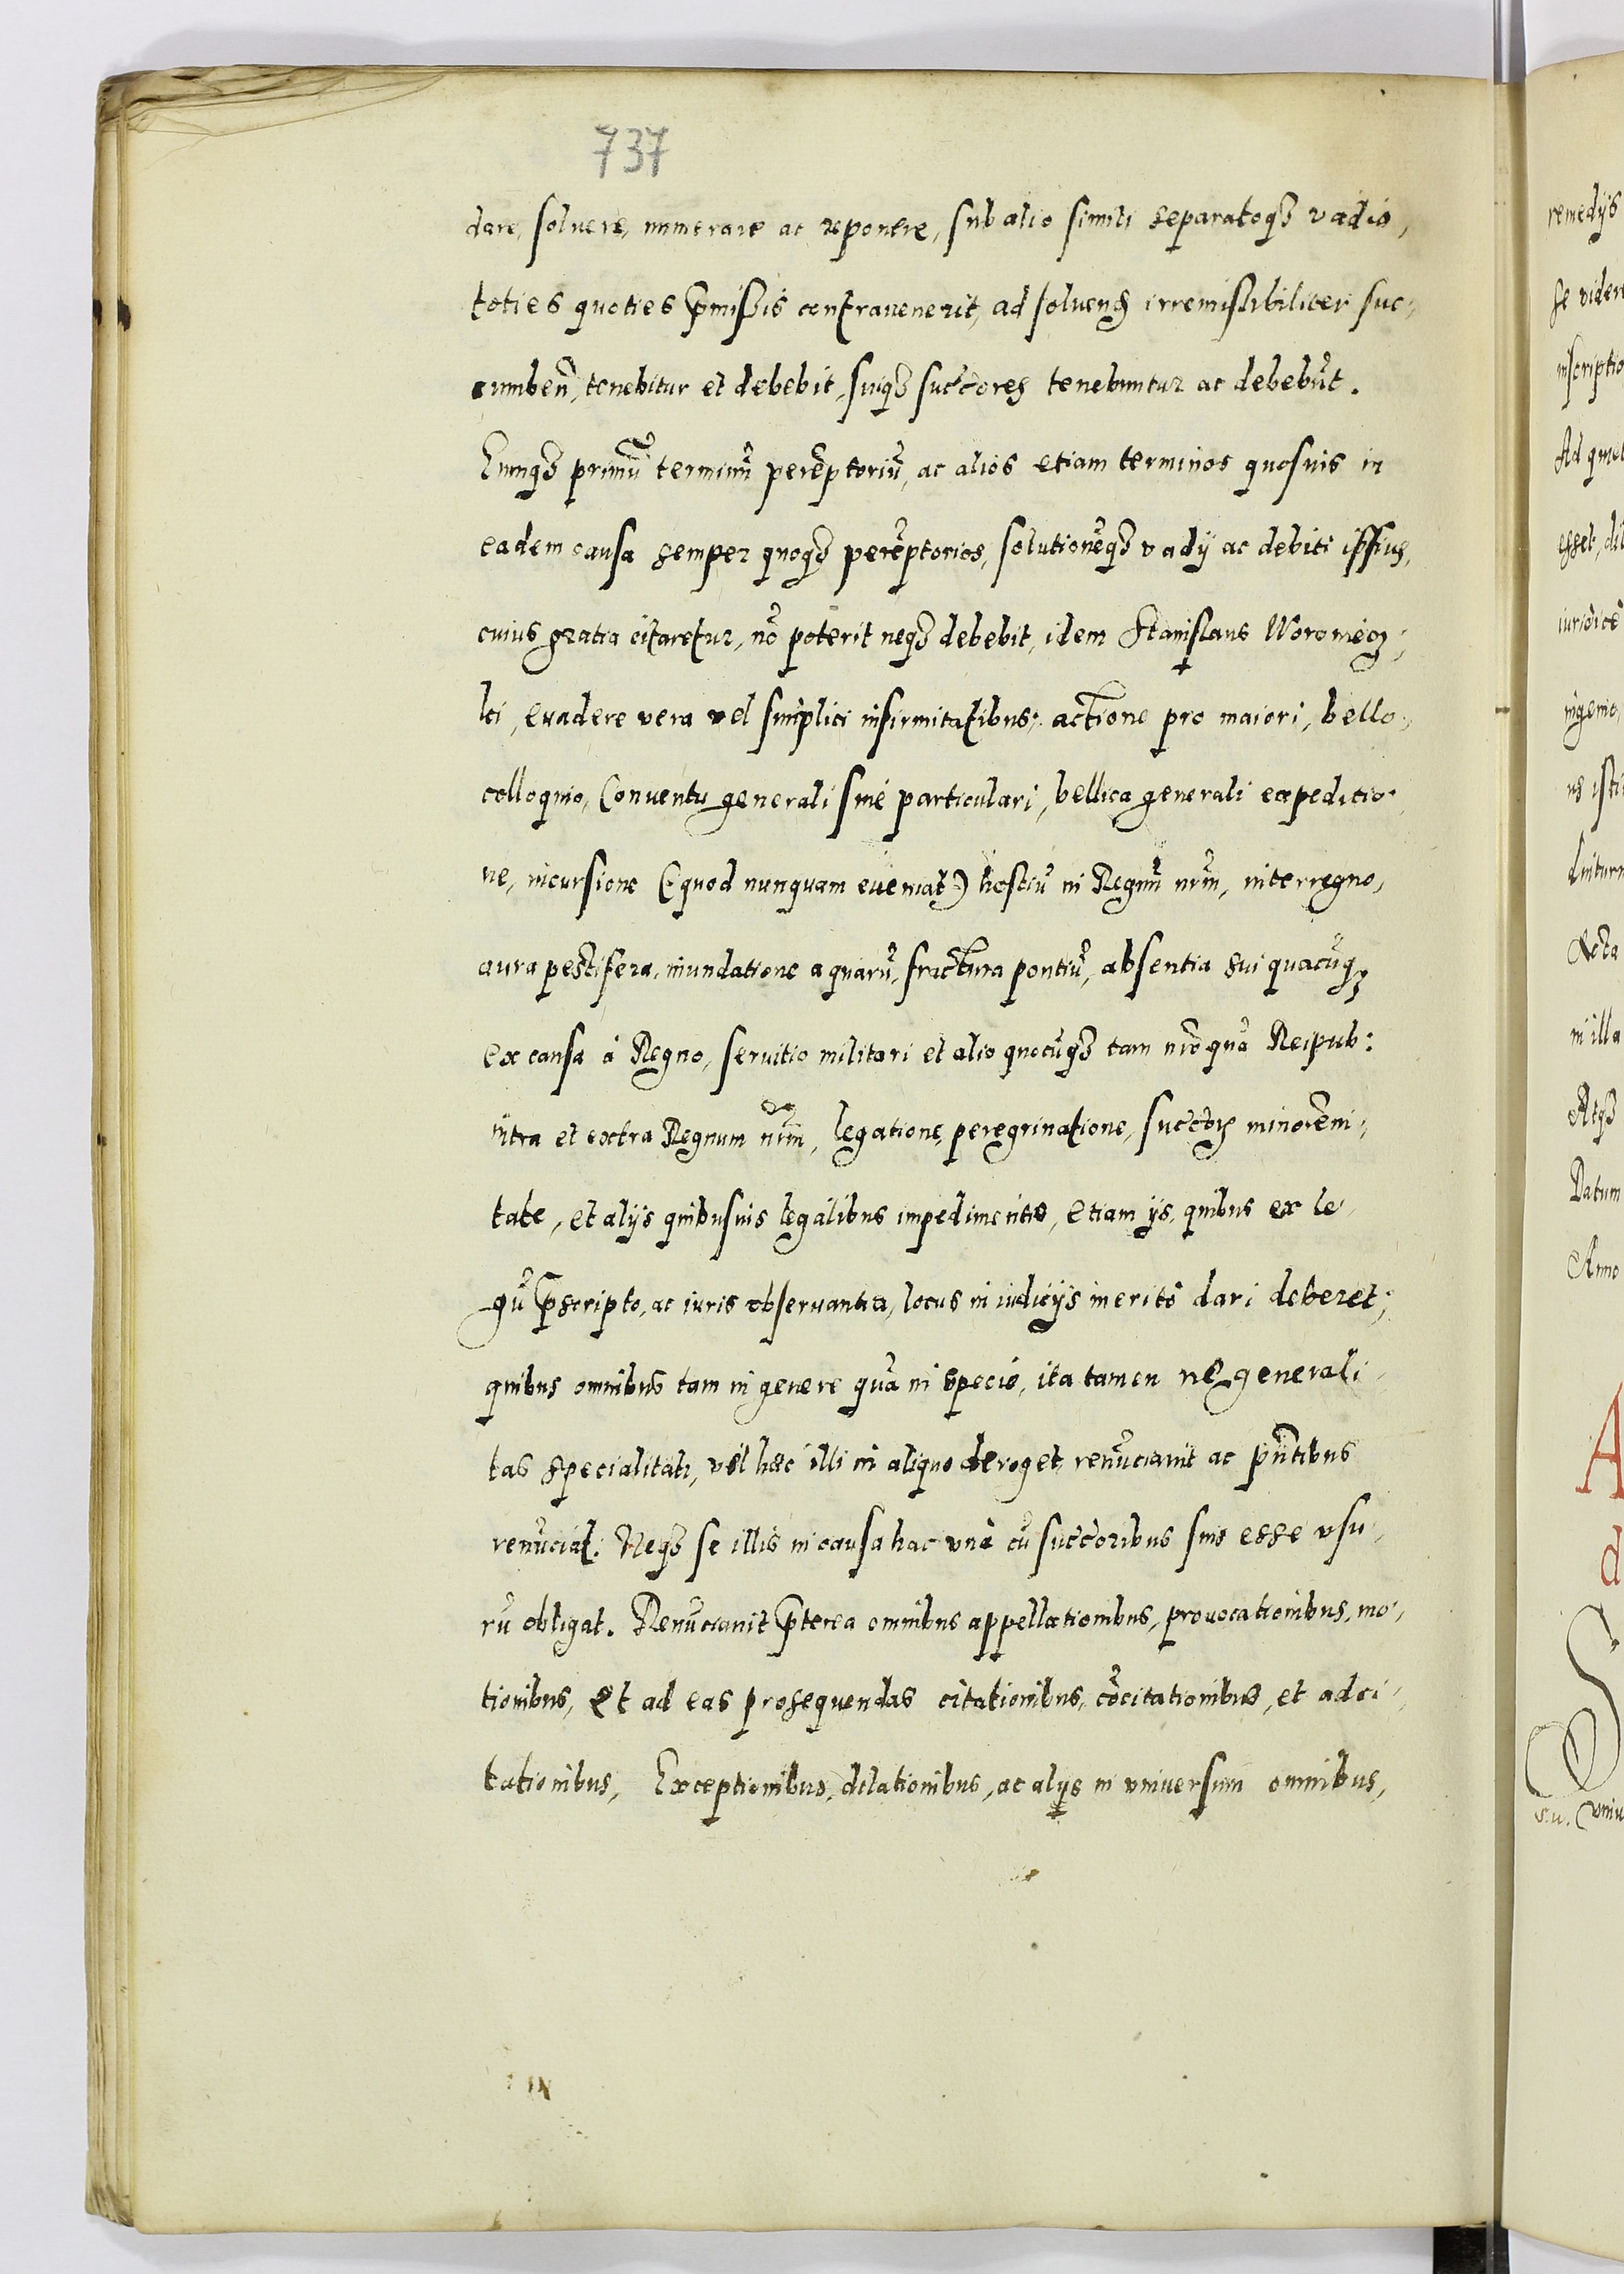 737
dare, soluere, numerare ac reponere, sub alio simili separatoqȝ vadio,
toties quoties p̃missis contrauenerit, ad soluend irremissibiliter suc-
cumben̄, tenebitur et debebit, suiqȝ succ̃ores tenebuntur ac debebũt.
Eumqȝ primũ terminũ perẽptoriũ, ac alios etiam terminos quosuis in
eadem causa semper quoqȝ perẽptorios, solutionẽqȝ vadij ac debiti ipsius,
cuius gratia citaretur, nõ poterit neqȝ debebit, idem Stanislaus
ki, euadere vera vel simplici infirmitatibus: actione pro maiori, bello,
colloquio, Conuentu generali siué particulari, bellica generali expeditio-
ne, incursione (quod nunquam eueniat) hostiũ in Regnũ nrm̃, interregno,
aura pestifera, inundatione aquarũ, fractura pontiũ, absentia sui quacũqȝ
ex causa á Regno, seruitio militari et alio quocũqȝ tam nrõ quã Reipub:
intra et extra Regnum nrm̃, legatione, peregrinatione, succ̃orȝ minorẽni-
tate, et alijs quibusuis legalibus impedimentis, etiam ijs, quibus ex le-
gũ p̃scripto, ac iuris obseruantia, locus in iudicijs meritò dari deberet;
quibus omnibus tam in genere quã in specié, ita tamen ne generali-
tas specialitati, vel haec illi in aliquo deroget, renũciauit ac pñtibus
renũciat. Neqȝ se illis in causa hac vnà cũ succ̃oribus suis esse vsu-
rũ obligat. Renũciauit p̃terea omnibus appellationibus, prouocationibus, mo-
tionibus, et ad eas prosequendas citationibus, cõcitationibus, et adci-
tationibus, Exceptionibus, dilationibus, ac alijs in vniuersum omnibus,
remedijs
se viden
inscriptio
iuridicé
ingenio,
in illa
Atqȝ
Datum
Anno
A
d
S